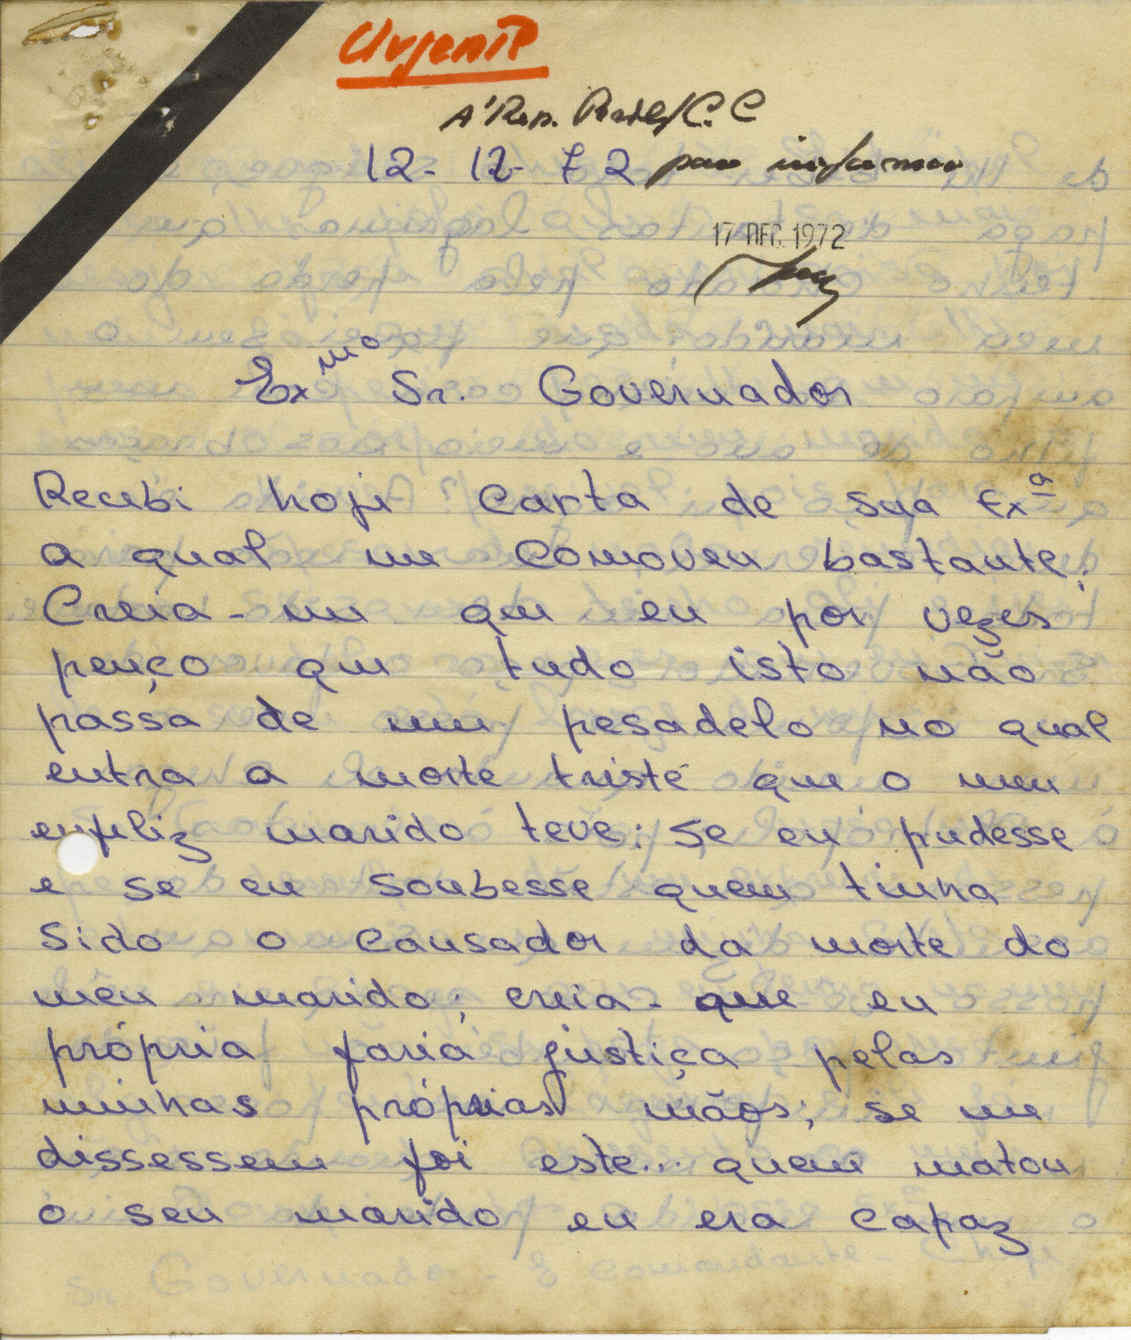 Urgente
A' Rep. C. C
12-12-72 para informar
17 DEC. 1972
Exmo Sr. Governador
Recebi hoje carta de sua Exª
a qual me comoveu bastante;
Creia-me que eu por vezes
penço que tudo isto não
passa de um pesadelo no qual
entra a morte triste que o meu
enfeliz marido teve; Se eu pudesse
e se eu soubesse quem tinha
sido o causador da morte do
meu marido; creia-que eu
própria faria justiça pelas
minhas próprias mãos; se me
dissessem foi este... quem matou
o seu marido eu era capaz
Sr. Governador - E Comandante - Chefe